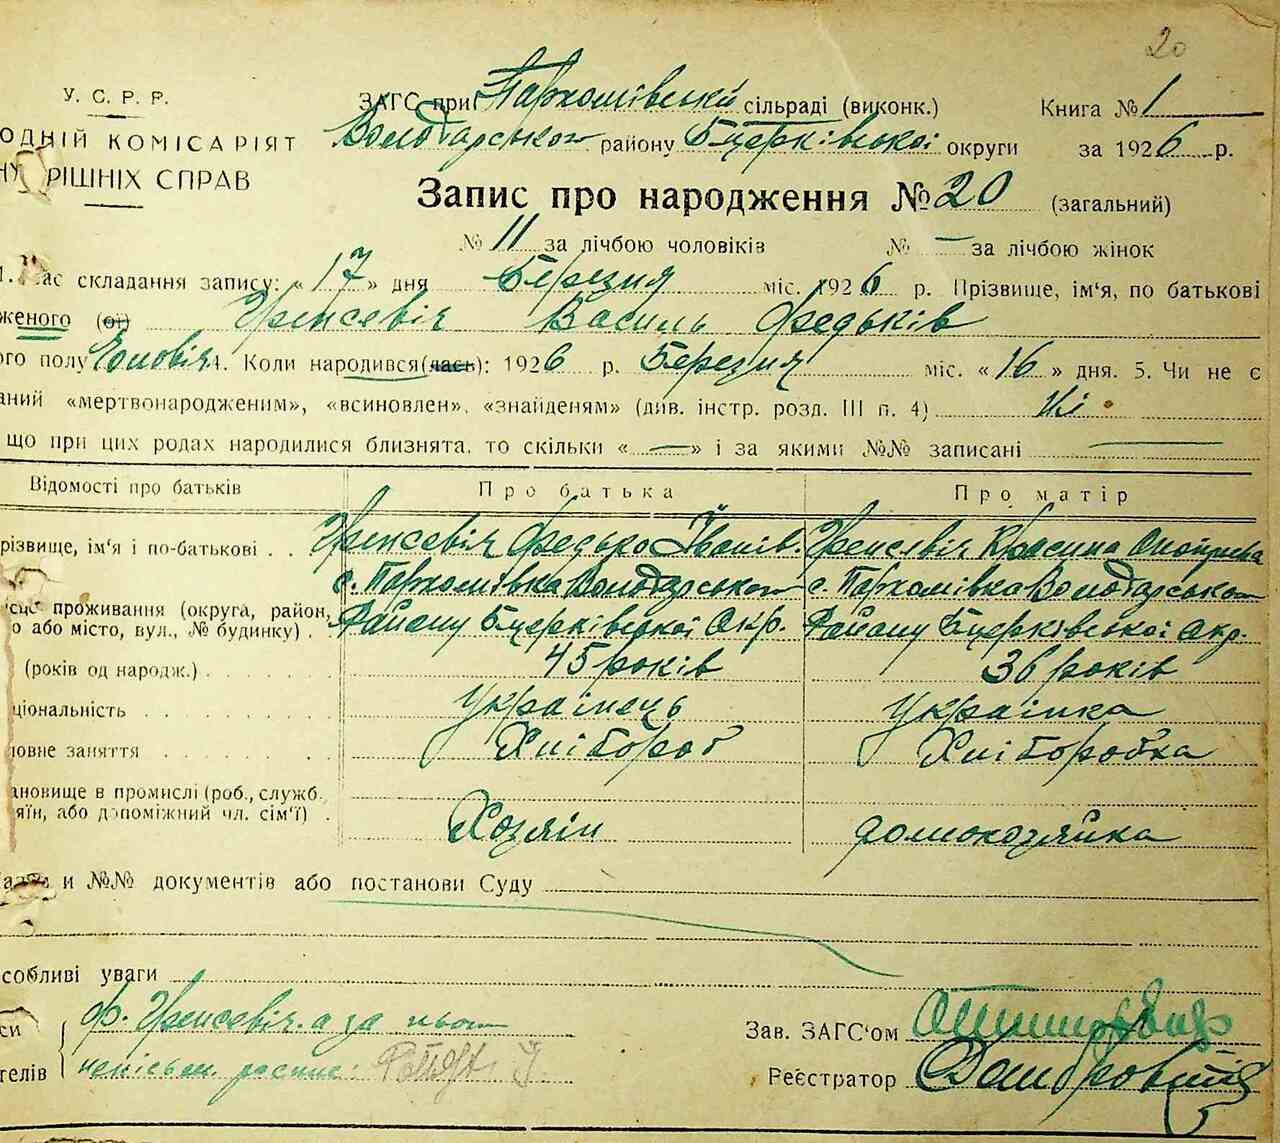 20
У. С. Р. Р.
ОДНІЙ КОМІСАРІЯТ
РІШНІХ СПРАВ
ЗАГС при Пархомівській сільраді (виконк.) Книга № 1
Володарського району Бцерківської округи за 1926 р.
Запис про народження № 20 (загальний)
№ 11 за лічбою чоловіків № — за лічбою жінок
1. час складання запису: «17» дня Березня міс. 1926 р. Прізвище, ім'я, по батькові
женого (ої) Василь Федьків
ого полу Чоловіч. 4. Коли народився(лась): 1926 р. Березня міс. «16» дня. 5. Чи не є
аний «мертвонародженим», «всиновлен», «знайденям» (див. інстр. розд. III п. 4) Ні
що при цих родах народилися близнята, то скільки «—» і за якими №№ записані —
Відомості про батьків Про батька Про матір
різвище, ім'я і по-батькові . . Федько Іванів.
с. Пархомівка Володарського с. Пархомівка Володарського
проживання (округа, район,
о або місто, вул., № будинку) . Району Бцерківської Окр. Району Бцерківської Окр.
(років од народж.) . 45 років 36 років
ціональність Українець Українка
ловне заняття Хлібороб Хліборобка
ановище в промислі (роб., служб.
яїн, або допоміжний чл. сім'ї) . Хозяїн домохозяйка
и №№ документів або постанови Суду
собливі уваги
си Ф. а за нього
телів неписьм.
Зав. ЗАГС'ом
Реєстратор